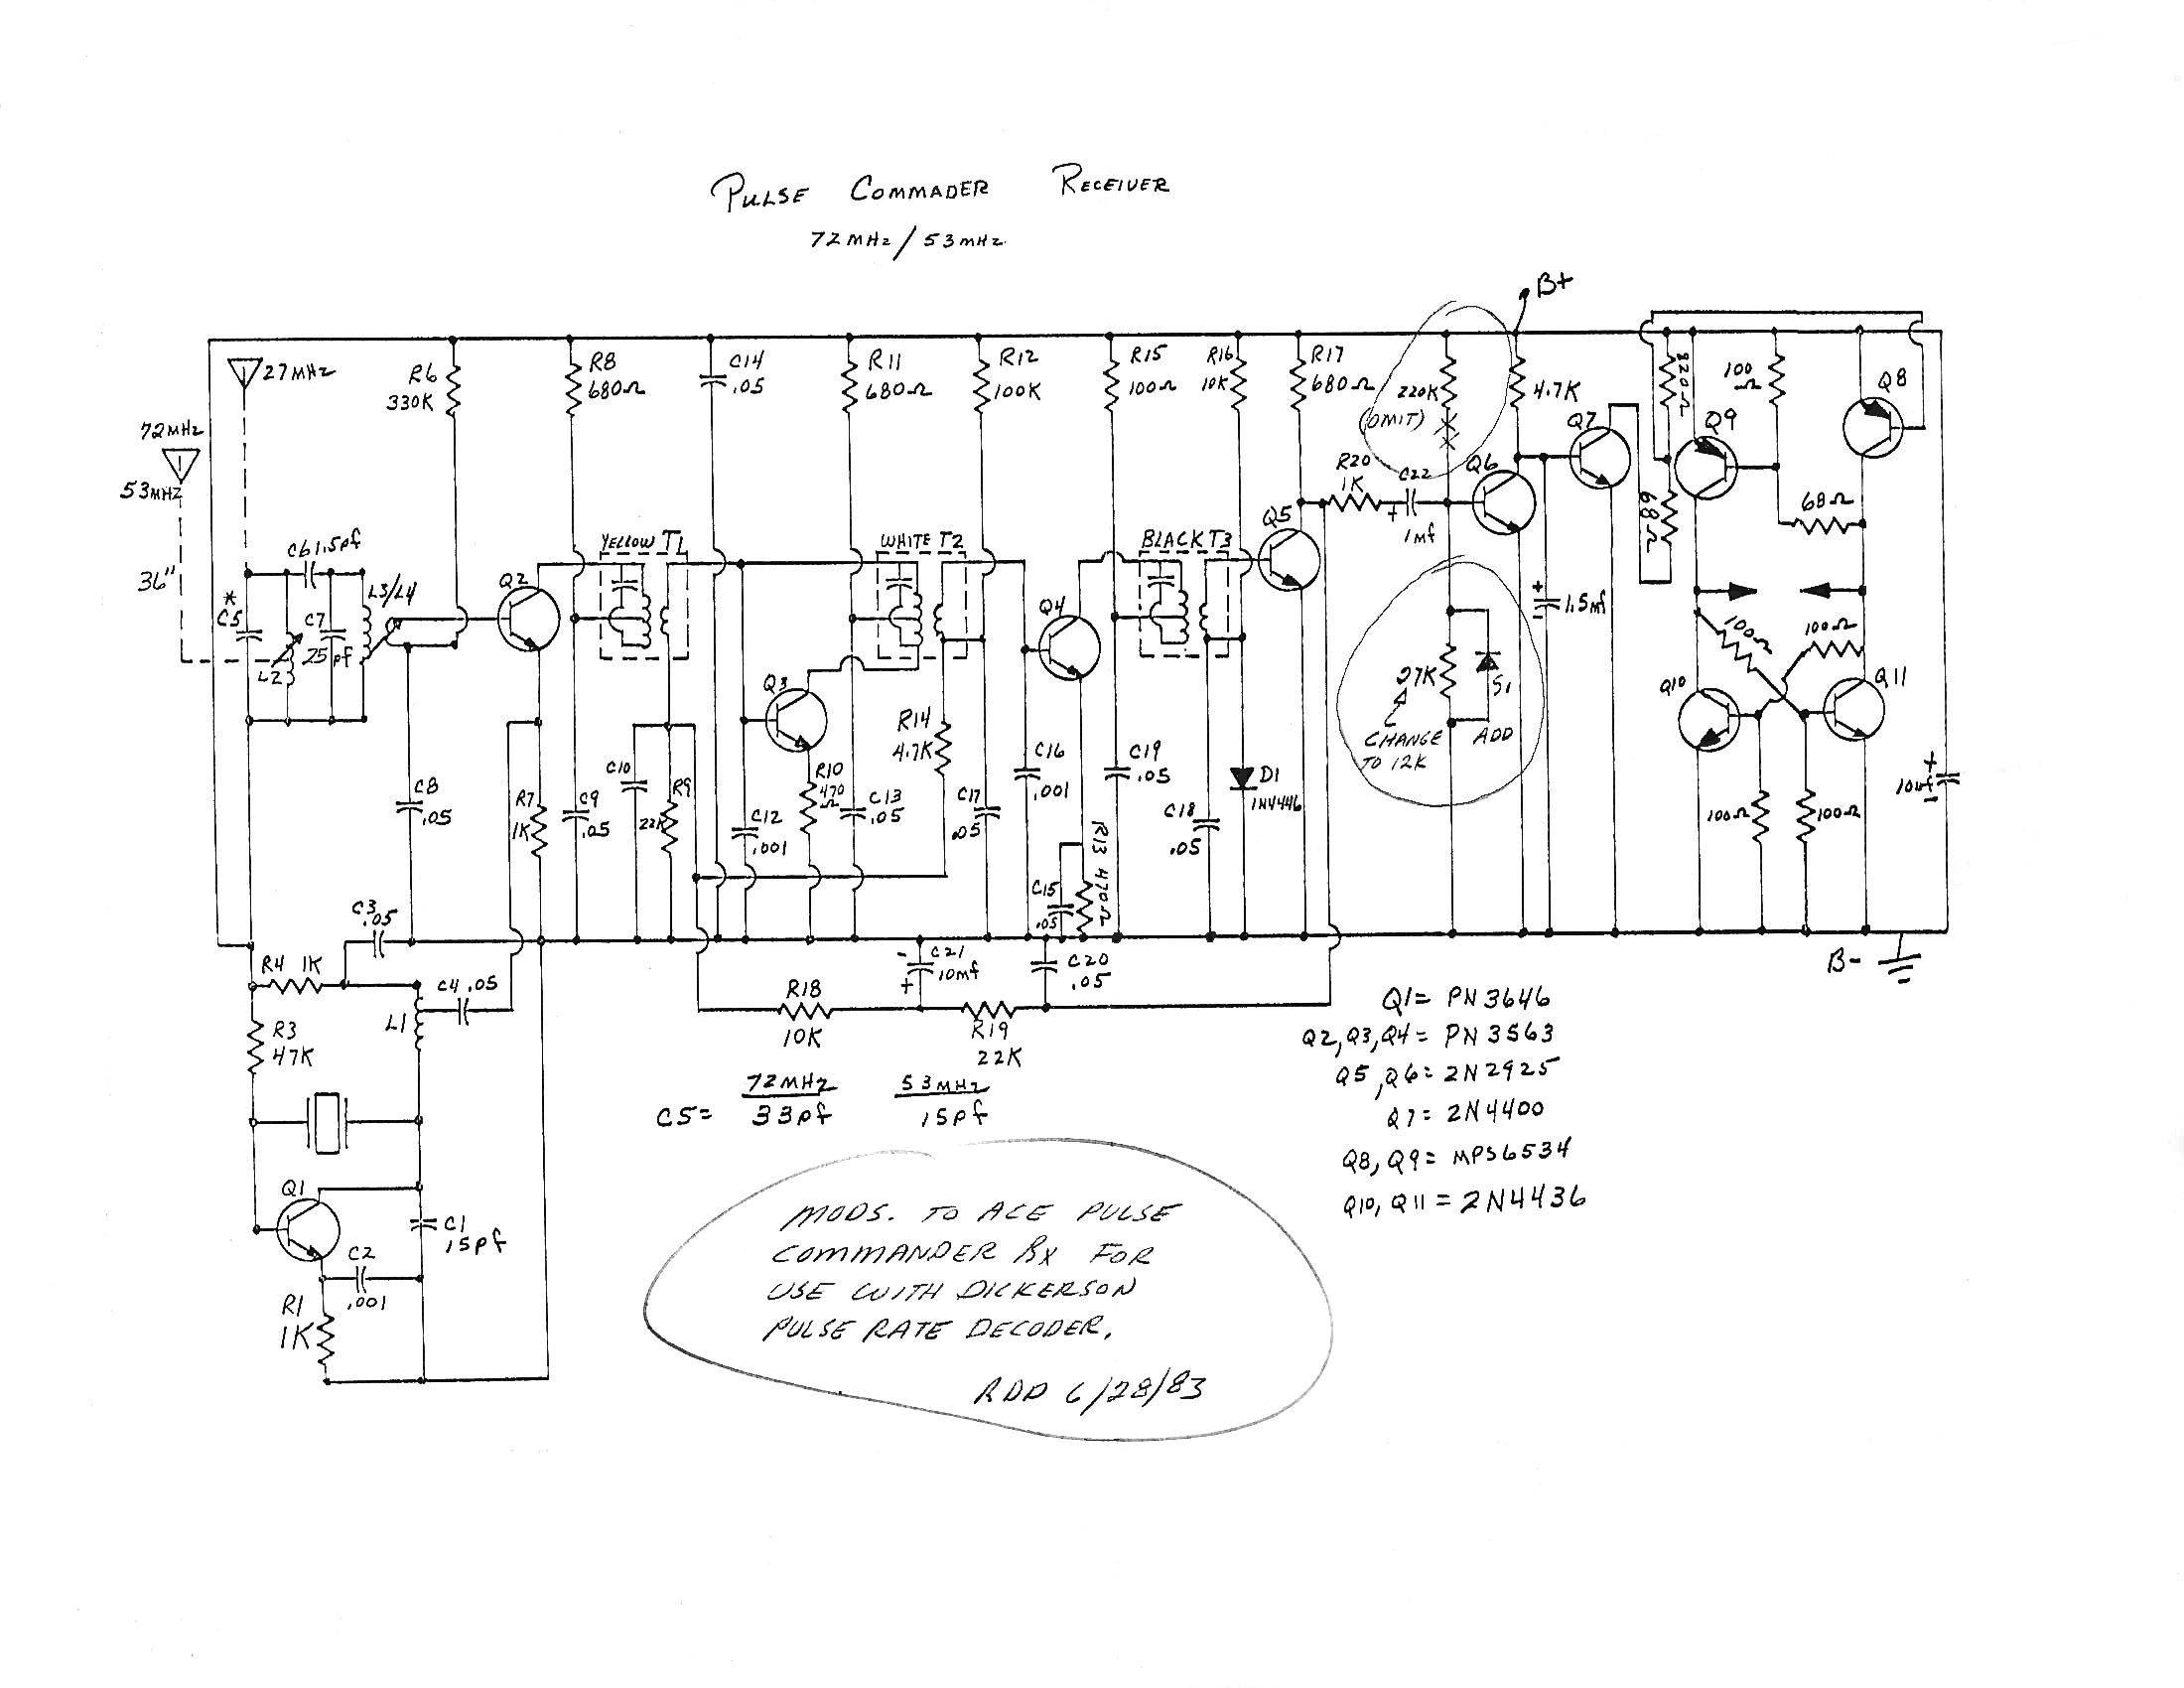 PULSE COMMADER RECEIVER
72MHz / 53MHz
B+
27MHz
72MHz
53MHz
36"
R6
330K
R8
680Ω
C14
.05
R11
680Ω
R12
100K
R15
100Ω
R16
10K
R17
680Ω
220K
(OMIT)
4.7K
820Ω
100
Ω
Q8
Q7
Q9
R20
1K
C22
+
1mf
Q6
68Ω
68Ω
C6 1.5pf
*
C5
C7
25pf
L2
L3/L4
Q2
YELLOW T1
WHITE T2
BLACK T3
Q5
Q4
Q3
+
1.5mf
-
100Ω
100Ω
Q10
Q11
27K
S1
CHANGE
TO 12K
ADD
C8
.05
R7
1K
C9
.05
C10
R9
22K
C12
.001
R10
470
Ω
C13
.05
R14
4.7K
C17
.05
C16
.001
C15
.05
R13 470Ω
C19
.05
C18
.05
D1
1N4446
100Ω
100Ω
+
10mf
-
B-
C3
.05
R4 1K
C4 .05
L1
R3
47K
R18
10K
-
C21
10mf
+
R19
22K
C20
.05
Q1
C1
15pf
C2
.001
R1
1K
72MHz 53MHz
C5= 33pf 15pf
Q1= PN3646
Q2, Q3, Q4= PN3563
Q5, Q6= 2N2925
Q7= 2N4400
Q8, Q9= MPS6534
Q10, Q11 = 2N4436
MODS. TO ACE PULSE
COMMANDER RX FOR
USE WITH DICKERSON
PULSE RATE DECODER.
RDD 6/28/83